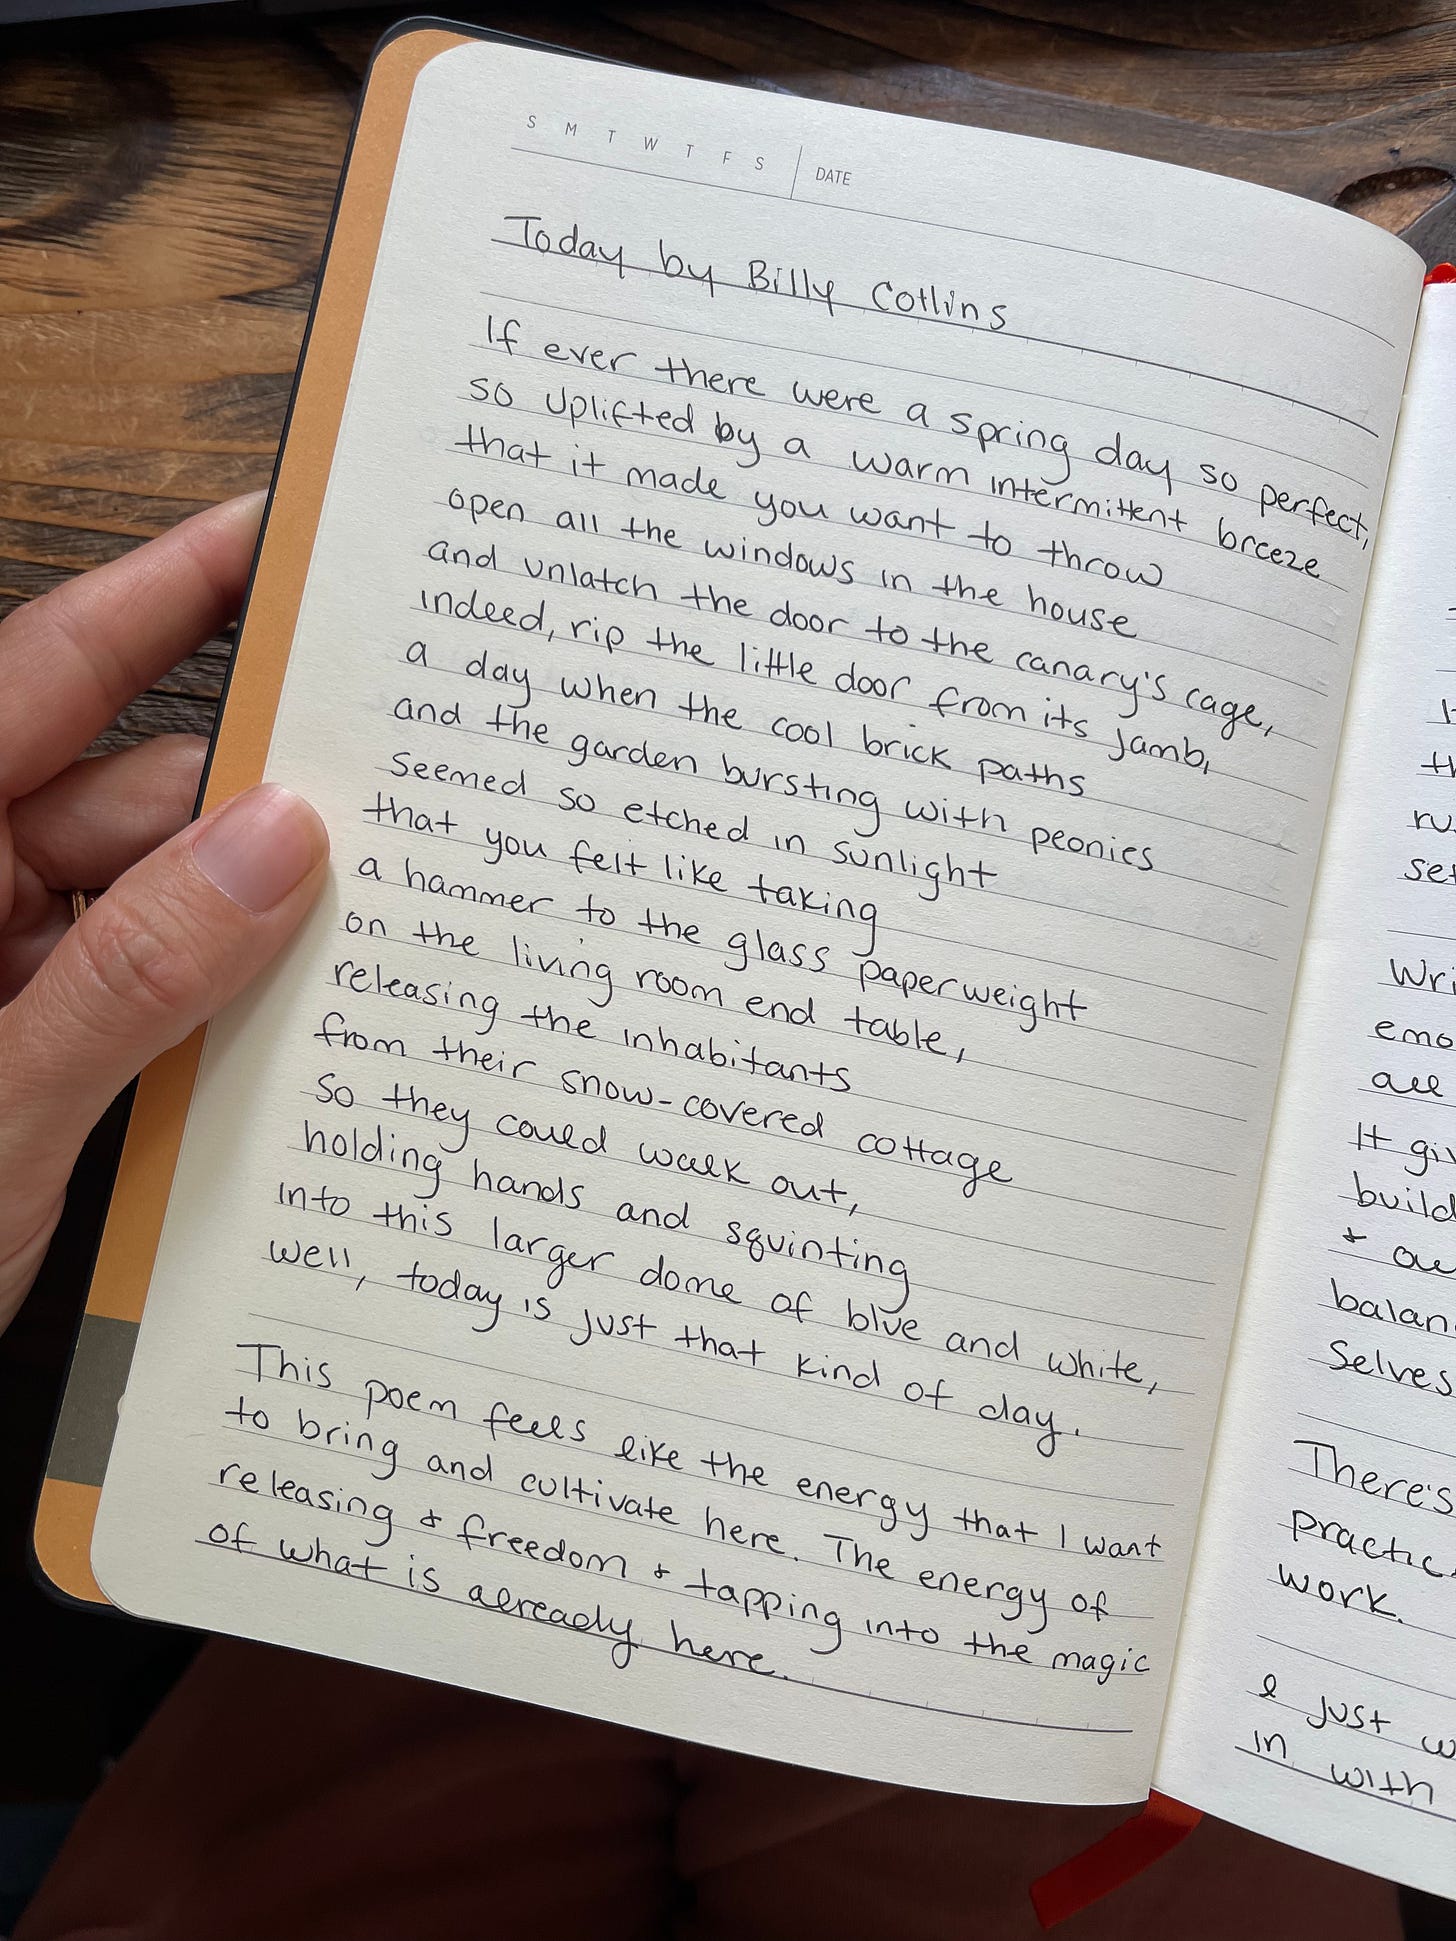 S M T W T F S DATE
Today by Billy Collins
If ever there were a spring day so perfect,
so uplifted by a warm intermittent breeze
that it made you want to throw
open all the windows in the house
and unlatch the door to the canary's cage,
indeed, rip the little door from its jamb,
a day when the cool brick paths
and the garden bursting with peonies
seemed so etched in sunlight
that you felt like taking
a hammer to the glass paperweight
on the living room end table,
releasing the inhabitants
from their snow-covered cottage
So they could walk out,
holding hands and squinting
into this larger dome of blue and white,
well, today is just that kind of day.
This poem feels like the energy that I want
to bring and cultivate here. The energy of
releasing & freedom & tapping into the magic
of what is already here.
Wri
emo
all
It giv
build
& ou
balan
Selves
There's
practic
work.
I just w
in with